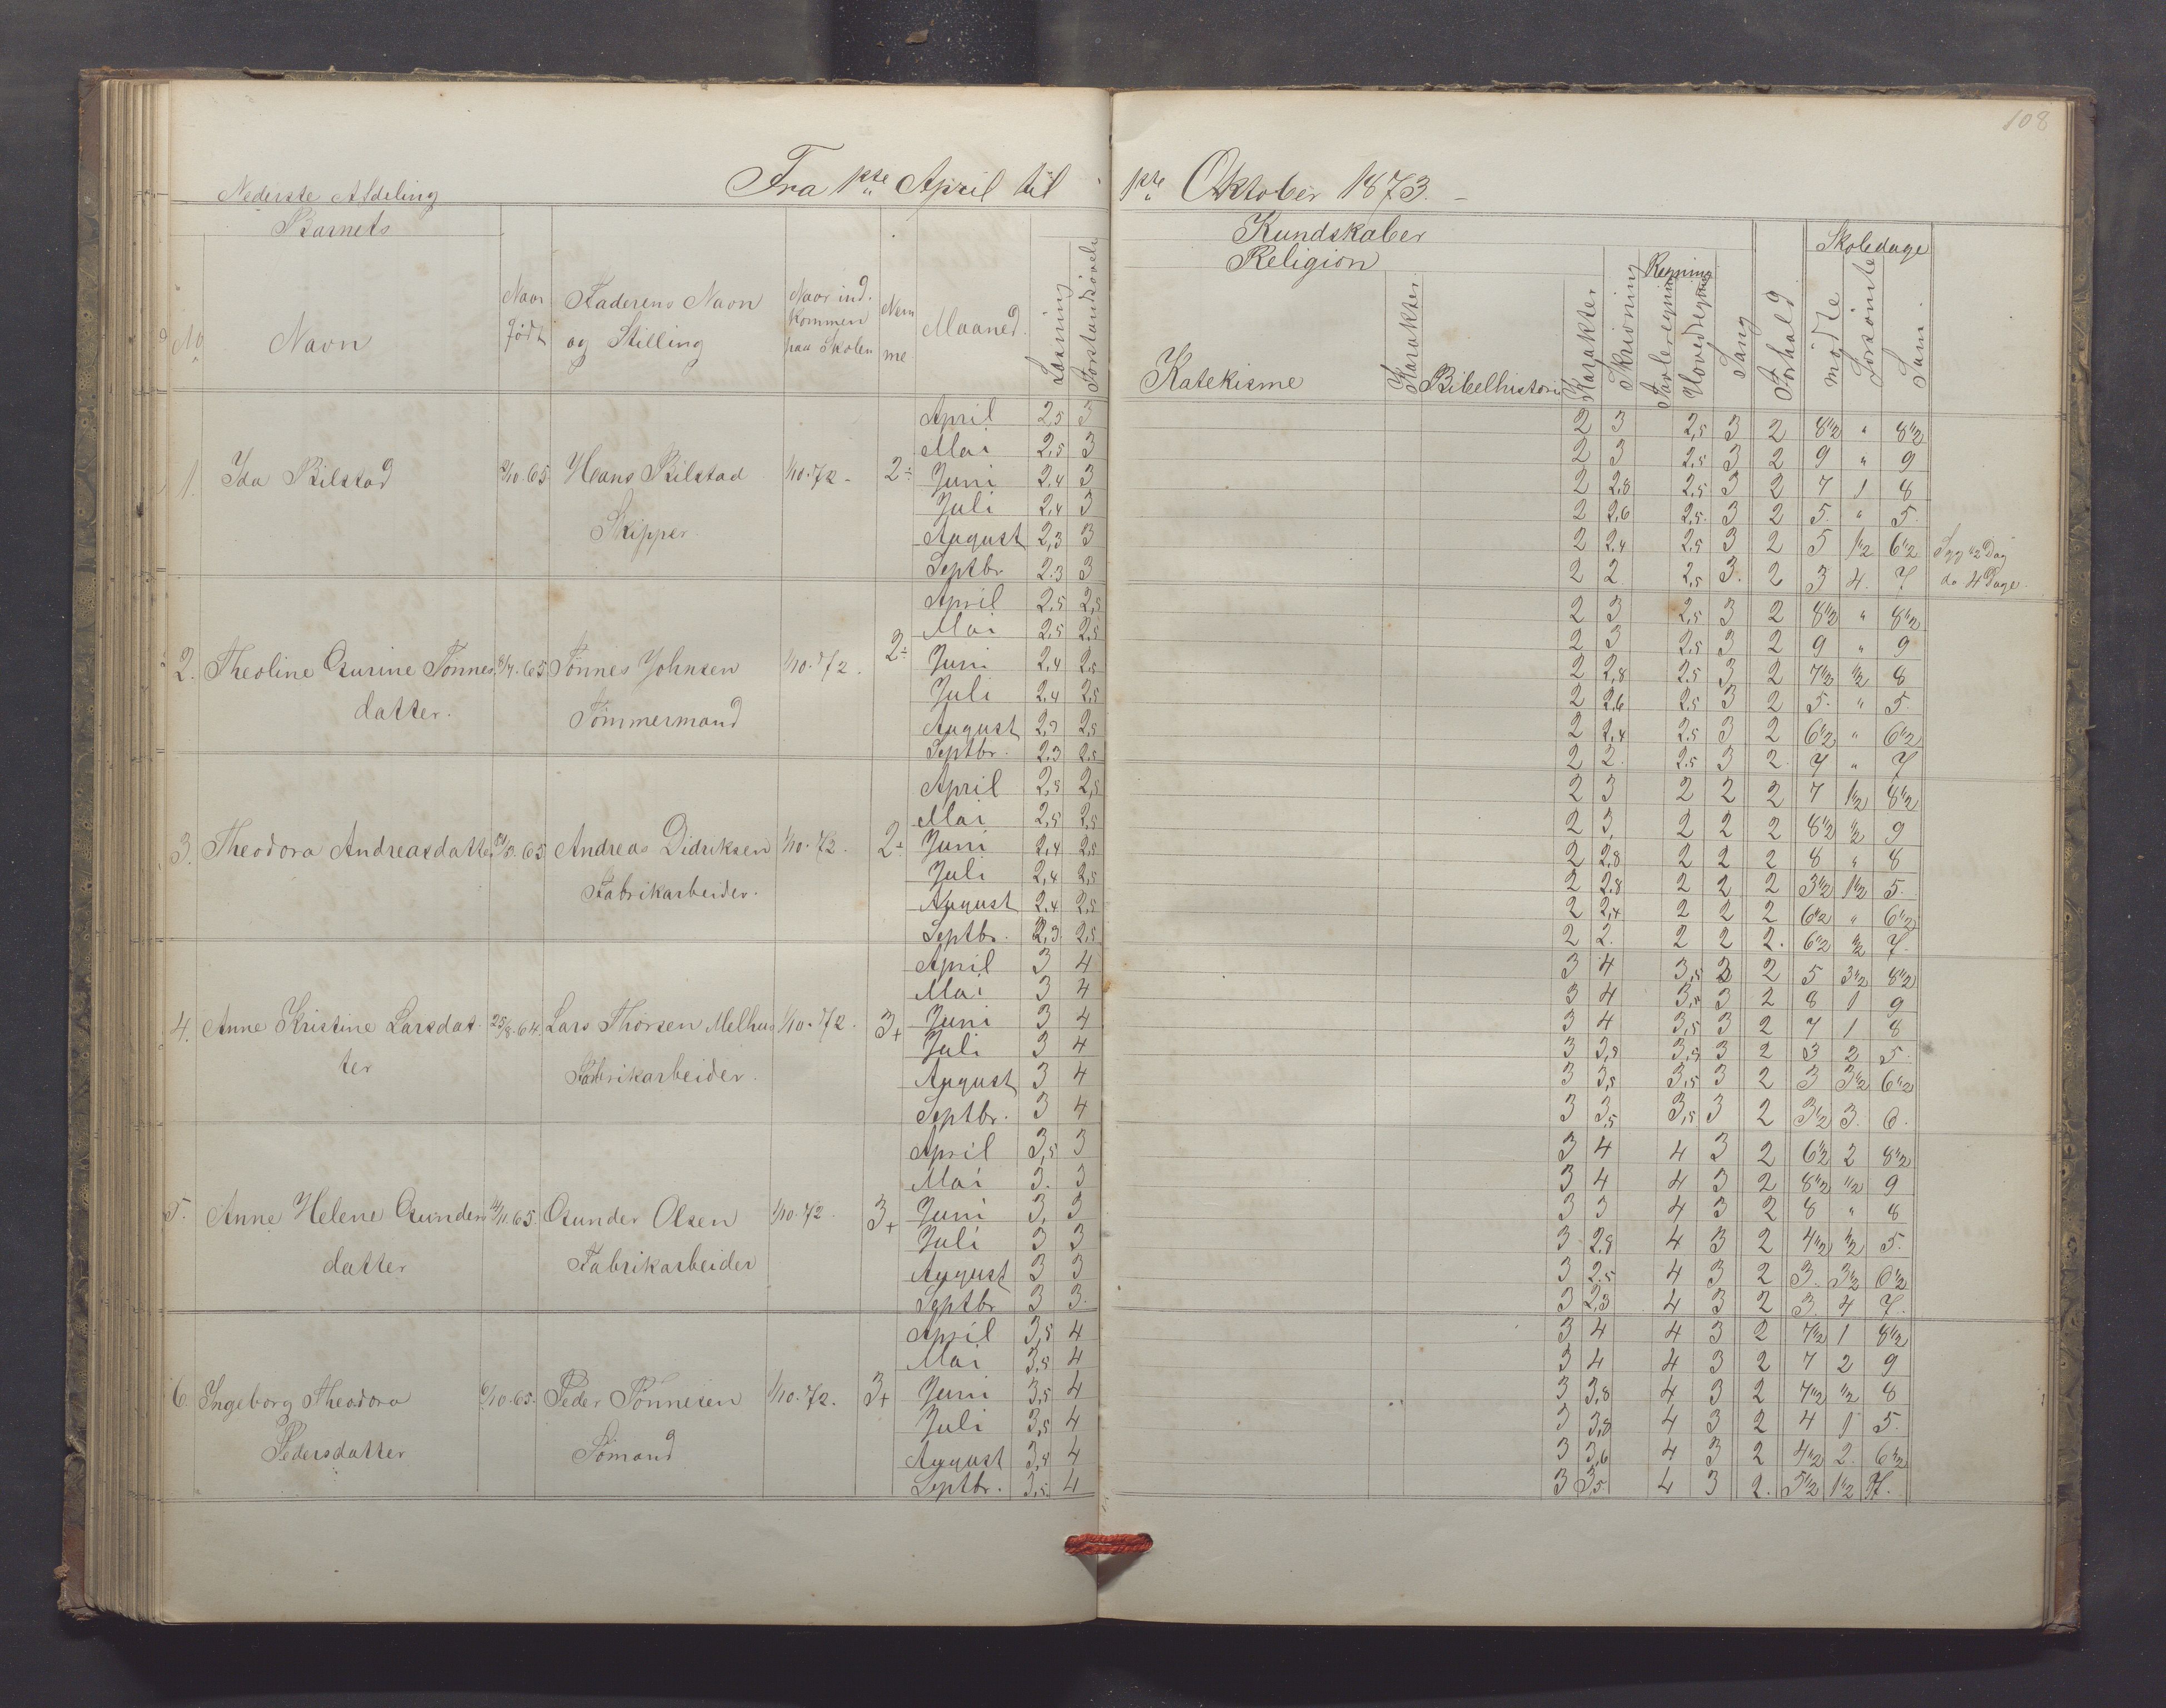 108
Nederste Afdeling
Fra 1ste April til 1ste Oktober 1873.
Barnets
Kundskaber
Skoledage
Religion
Regning
No Navn Naar født Faderens Navn og Stilling Naar ind. kommen paa Skolen Nemme Maaned. Læsning Forstandsøvels Katekisme Karakter Bibelhistorie Karakter Skrivning Tavleregning Hovedregning Sang Forhold mødte Forsømte Sum.
April 2,5 3 2 3 2,5 3 2 8 1/2 " 8 1/2
Mai 2,5 3 2 3 2,5 3 2 9 " 9
1. Ida Bilstad /10.65 Hans Bilstad 1/10.72 - 2÷ Juni 2,4 3 2 2,8 2,5 3 2 7 1 8
Juli 2,4 3 2 2,6 2,5. 3 2 5. " 5.
Skipper August 2,3 3 2 2,4 2,5 3 2 5 1 1/2 6 1/2 Syg 1/2 Dag
Septbr. 2.3 3 2 2 2,5 3. 2 3 4. 7 do 4 Dage.
April 2,5 2,5 2 3 2,5 3 2 8 1/2 " 8 1/2
Mai 2,5 2,5 2 3 2,5 3 2 9 " 9
2. Theoline Osurine Tønnes /7.65 Tønnes Johnsen 1/10.72. 2÷ Juni 2,4 2,5 2 2,8 2,5 3 2 7 1/2 1/2 8
datter. Juli 2,4 2,5 2 2,6 2,5 3 2 5. " 5.
Tømmermand August 2,3 2,5 2 2,4 2,5 3 2 6 1/2 " 6 1/2
Septbr. 2,3 2,5 2 2. 2,5 3 2. 7 " 7
April 2,5 2,5 2 3 2 2 2 7 1 1/2 8 1/2
Mai 2,5 2,5 2 3, 2 2 2 8 1/2 1/2 9
3. Theodora Andreasdatter .65 Andreas Didriksen 1/10.72. 2÷ Juni 2,4 2,5 2 2,8 2 2 2 8 " 8
Fabrikarbeider. Juli 2,4 2,5 2 2,8 2 2 2 3 1/2 1 1/2 5.
August 2,4 2,5 2 2,4 2 2 2 6 1/2 " 6 1/2
Septbr. 2,3 2,5 2 2. 2 2 2. 6 1/2 1/2 7.
April 3 4 3 4 3,5 2 2 5 3 1/2 8 1/2
Mai 3 4 3 4 3,5 3 2 8 1 9
4. Anne Kristine Larsdat 25/8.64. Lars Thorsen Melhus 1/10.72. 3+ Juni 3 4 3 4 3,5 3 2 7 1 8
ter Juli 3 4 3 3,8 3,5 3 2 3 2 5.
Fabrikarbeider. August 3 4 3 3,5 3,5 3 2 3 3 1/2 6 1/2
Septbr. 3 4 3 3,5 3,5 3 2 3 1/2 3. 6.
April 3,5 3 3 4 4 3 2 6 1/2 2 8 1/2
Mai 3. 3 3 4 4 3 2 8 1/2 1/2 9
5. Anne Helene Osunders /11.65. Osunder Olsen 1/10.72. 3+ Juni 3, 3 3 3 4 3 2 8 " 8
datter Juli 3 3 3 2,8 4 3 2 4 1/2 1/2 5.
Fabrikarbeider August 3 3 3 2.5 4 3 2 3. 3 1/2 6 1/2
Septbr 3 3. 3 2,3 4 3 2 3. 4 7.
April 3,5 4 3 4 4 3 2 7 1/2 1 8 1/2
Mai 3,5 4 3 4 4 3 2 7 2 9
6. Ingeborg Theodora /10.65. Peder Tønnesen 1/10.72. 3+ Juni 3,5 4 3 3,8 4 3 2 7 1/2 1/2 8
Pedersdatter Juli 3,5 4 3 3,8 4 3 2 4 1 5.
Sømand August 3,5 4 3 3,6 4 3 2 4 1/2 2. 6 1/2
Septbr. 3,5. 4 3 3,5 4 3 2. 5 1/2 1 1/2 7.